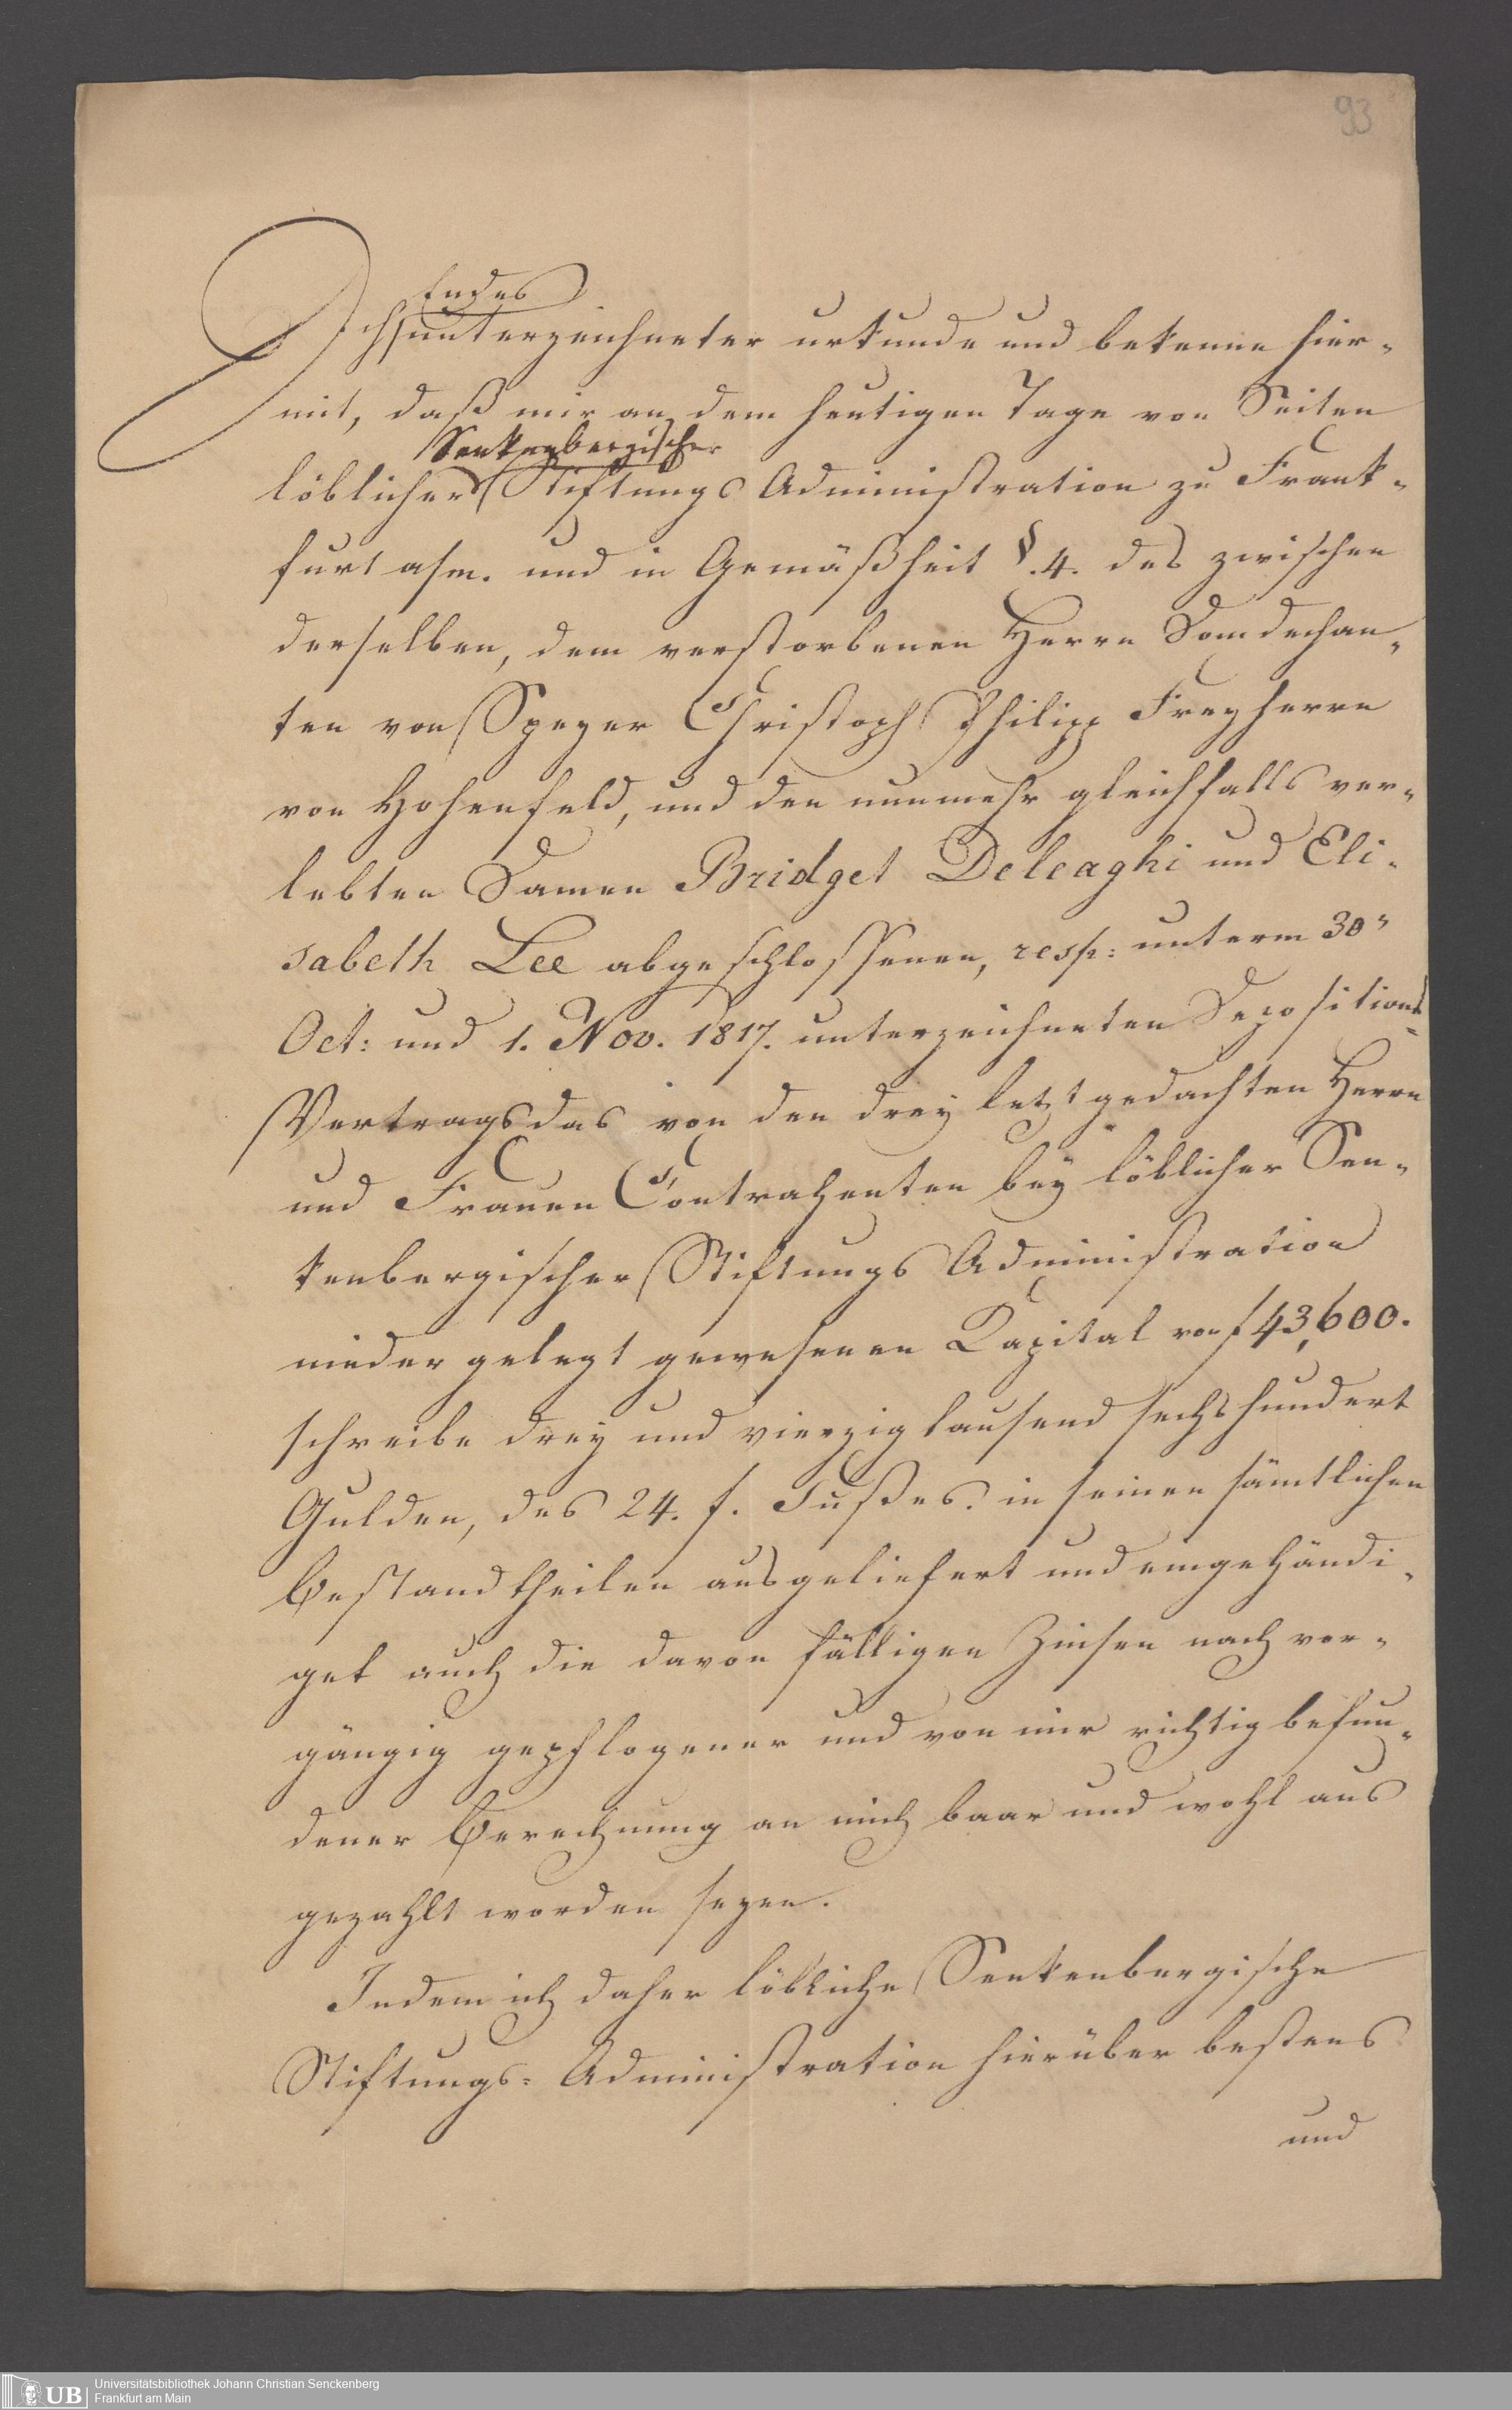 93
Endes
Ich unterzeichneter urkunde und bekenne hier-
mit, daß mir an dem heutigen Tage von Seiten
Senkenbergischer
löblicher Stiftungs Administration zu Frank-
furt a/m. und in Gemäßheit §.4. des zwischen
derselben, dem verstorbenen Herrn Domdechan-
ten von Speyer Christoph Philipp Freyherrn
von Hohenfeld, und den nunmehr gleichfalls ver-
lebten Damen Bridget Deleaghi und Eli-
sabeth Lee abgeschlossenen, resp: unterm 30"
Oct: und 1. Nov. 1817. unterzeichneten Depositions-
Vertrags das von den drey letzt gedachten Herrn
und Frauen Contrahenten bey löblicher Sen-
kenbergischer Stiftungs Administration
nieder gelegt gewesenen Kapital von f 43,600.
schreibe drey und vierzig tausend sechshundert
Gulden, des 24. f. Fußes. in seinen sämtlichen
Bestandtheilen ausgeliefert und eingehändi-
get auch die davon fälligen Zinsen nach vor-
gängig gepflogener und von mir richtig befun-
dener Berechnung an mich baar und wohl aus
gezahlt worden seyen.
Indem ich daher löbliche Senkenbergische
Stiftungs- Administration hierüber bestens
und
UB
Universitätsbibliothek Johann Christian Senckenberg
Frankfurt am Main